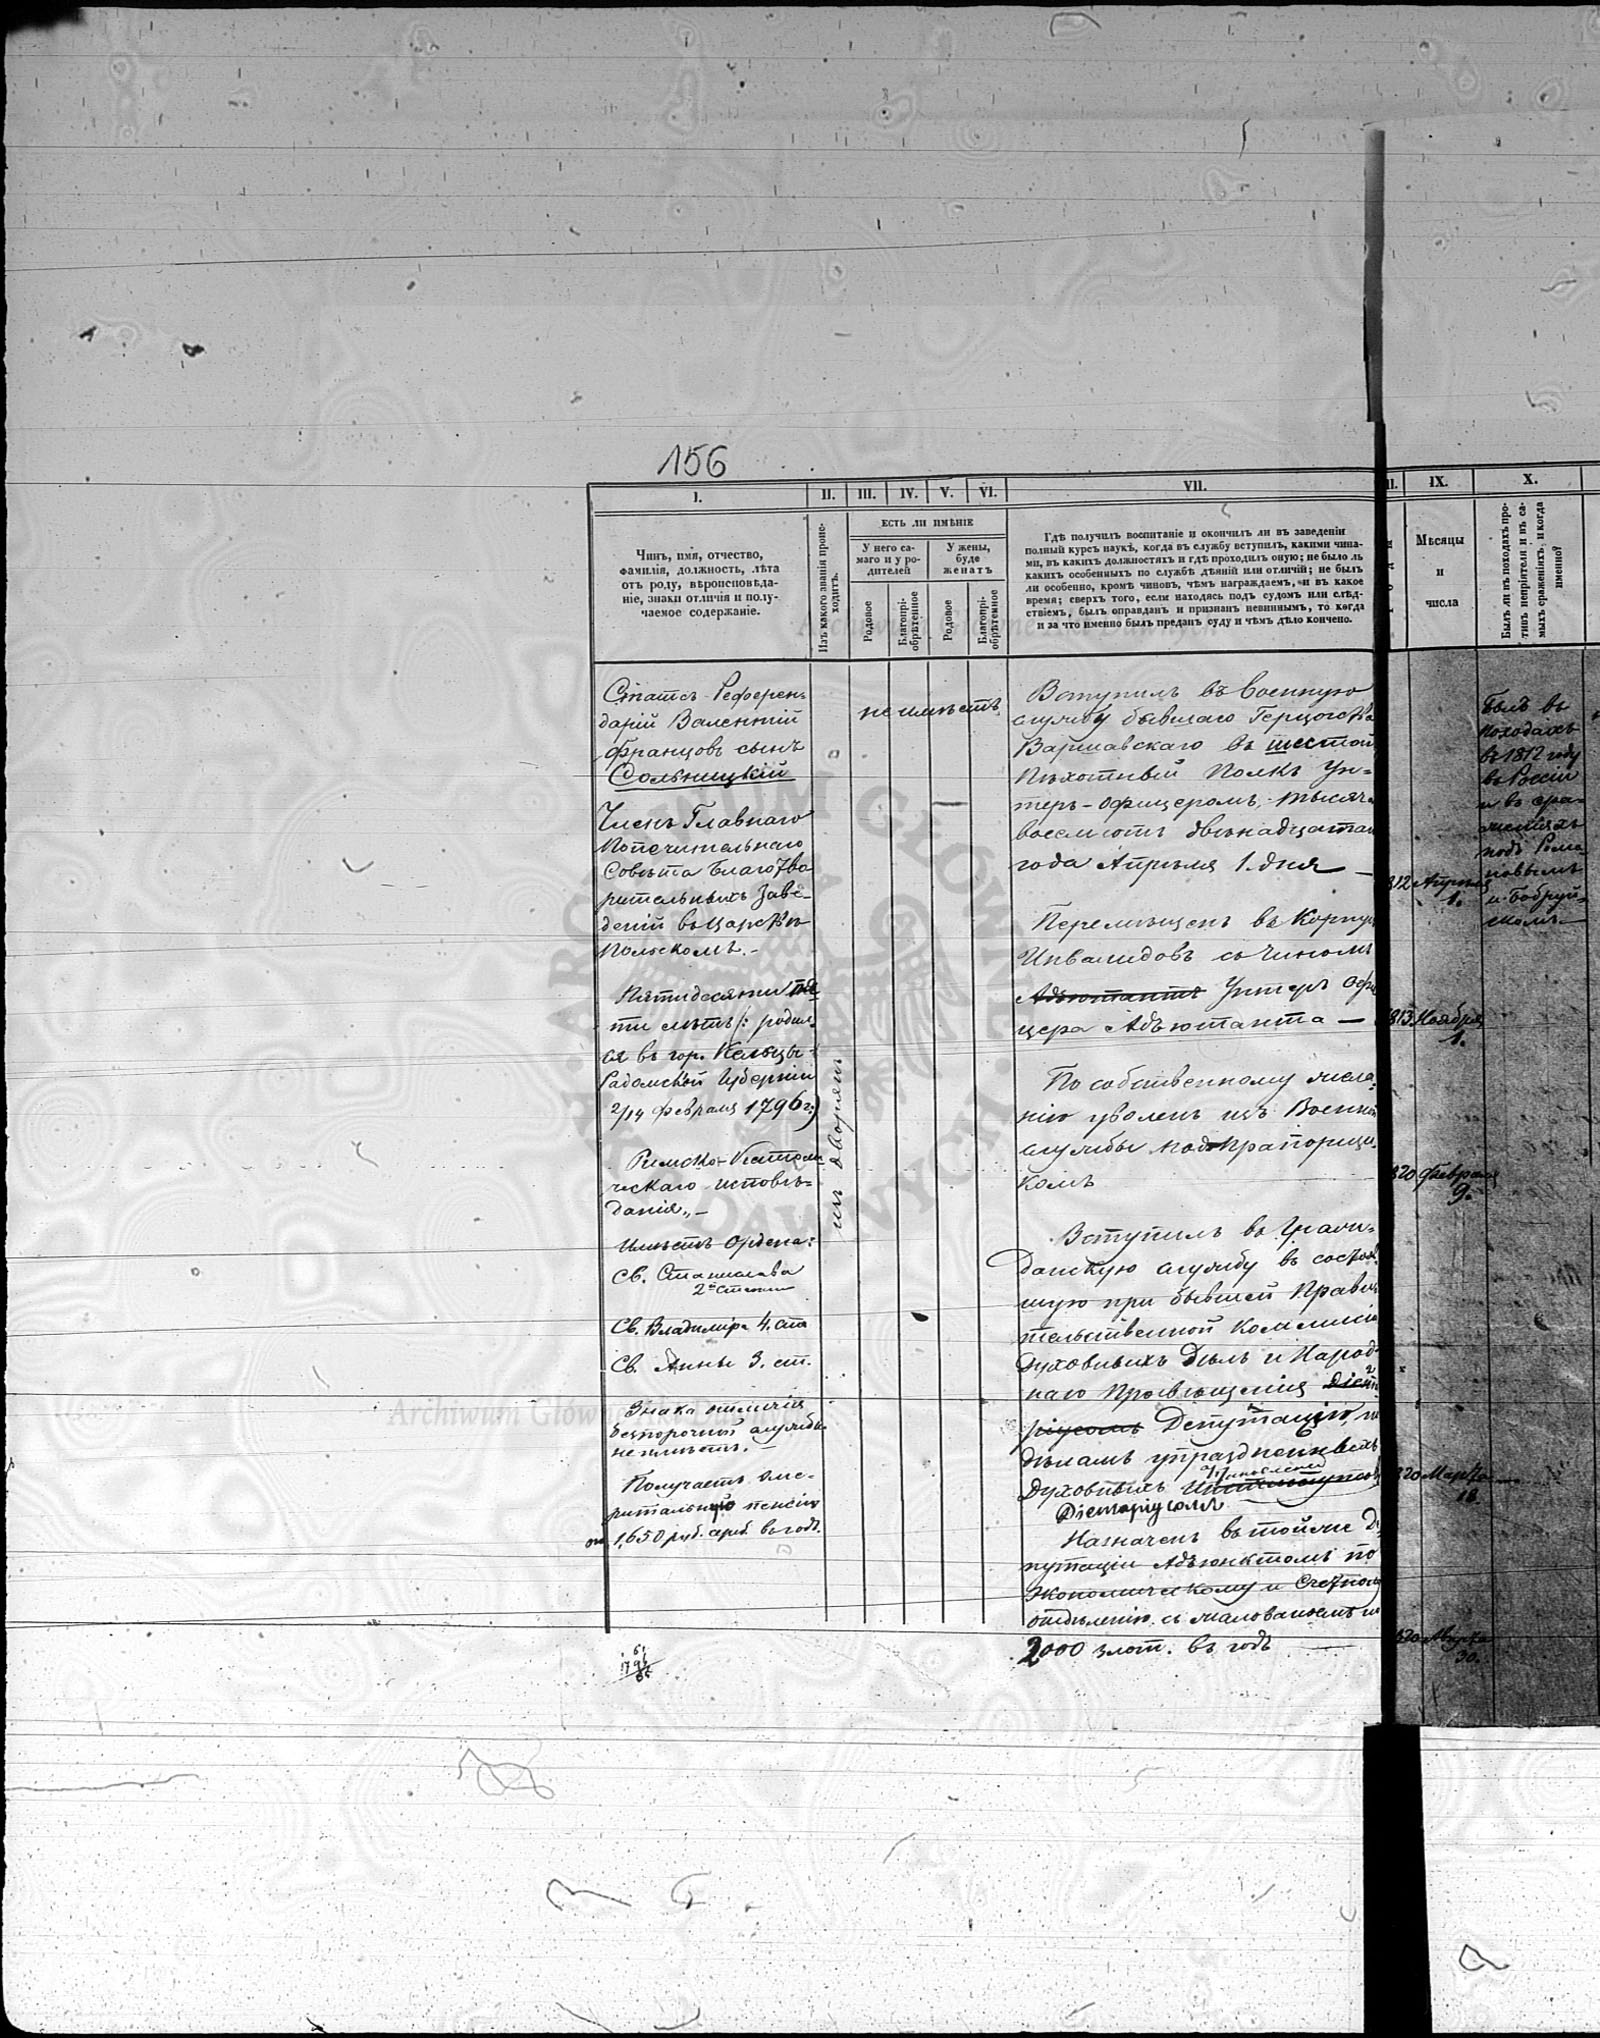 156
I.
II.
III.
IV.
V.
VI.
VII.
IX.
X.
Чинъ, имя, отчество,
фамилія, должность, лѣта
отъ роду, вѣроисповѣда-
ніе, знаки отличія и полу-
чаемое содержаніе.
Изъ какого званія проис-
ходитъ.
ЕСТЬ ЛИ ИМѢНІЕ
У него са-
маго и у ро-
дителей
У жены,
буде
женатъ
Родовое
Благопрі-
обрѣтенное
Родовое
Благопрі-
обрѣтенное
Гдѣ получилъ воспитаніе и окончилъ ли въ заведеніи
полный курсъ наукъ, когда въ службу вступилъ, какими чина-
ми, въ какихъ должностяхъ и гдѣ проходилъ оную; не было ль
какихъ особенныхъ по службѣ дѣяній или отличій; не былъ
ли особенно, кромѣ чиновъ, чѣмъ награждаемъ, и въ какое
время; сверхъ того, если находясь подъ судомъ или слѣд-
ствіемъ, былъ оправданъ и признанъ невиннымъ, то когда
и за что именно былъ преданъ суду и чѣмъ дѣло кончено.
Мѣсяцы
и
числа
Былъ ли въ походахъ про-
тивъ непріятеля и въ са-
мыхъ сраженіяхъ, и когда
именно?
Статсъ-Референ-
дарій Валентій
Францовъ сынъ
Сольницкій
Членъ Главнаго
Попечительнаго
Совѣта Благотво
рительныхъ Заве-
деній въ Царствѣ
Польскомъ.-
Пятидесяти
ти лѣтъ (: родил-
ся въ гор. Кельцы
Радомской Губерніи
2/14 февраля 1796 г:)
Римско-Католи
ческаго исповѣ-
данія.-
Имѣетъ Ордена:
Св. Станислава
2й степени
Св. Владиміра 4. ст
Св. Анны 3. ст.
Знака отличія
безпорочной службы
не имѣетъ.-
Получаетъ эме-
ритальную пенсію
1,650 руб. сереб. въ годъ.
изъ дворянъ
не имѣетъ
Вступилъ въ Военную
службу бывшаго Герцогства
Варшавскаго въ шестой
Пѣхотный Полкъ Ун-
теръ-офицеромъ, тысяча
восемьсотъ двѣнадцатаго
года Апрѣля 1. дня —
Перемѣщенъ въ Корпусъ
Инвалидовъ съ чиномъ
Адъютантъ Унтеръ Офи
цера Адъютанта —
По собственному жела-
нію уволенъ изъ Военной
службы подпрапорщи-
комъ
Вступилъ въ Граж-
данскую службу въ состояв
шую при бывшей Правит
тельственной Коммисіи
Духовныхъ Дѣлъ и Народ-
наго Просвѣщенія
Депутацію, по
дѣламъ упраздненныхъ
Духовныхъ
Діетаріусомъ
Назначенъ въ тойже Де
путаціи Адъюнктомъ по
Экономическому и Счетному
отдѣленію съ жалованьемъ по
2000 злот. въ годъ
812 Апрѣля
1.
813 Ноября
1.
820 Февраля
9.
820 Марта
18.
820 Марта
30.
Былъ въ
походахъ
въ 1812 году
въ Россіи
и въ сра-
женіяхъ
подъ Рома
новымъ
и Бобруй-
скомъ.
Archiwum Główne Akt Dawnych
ARCHIWUM GŁÓWNE AKT DAWNYCH